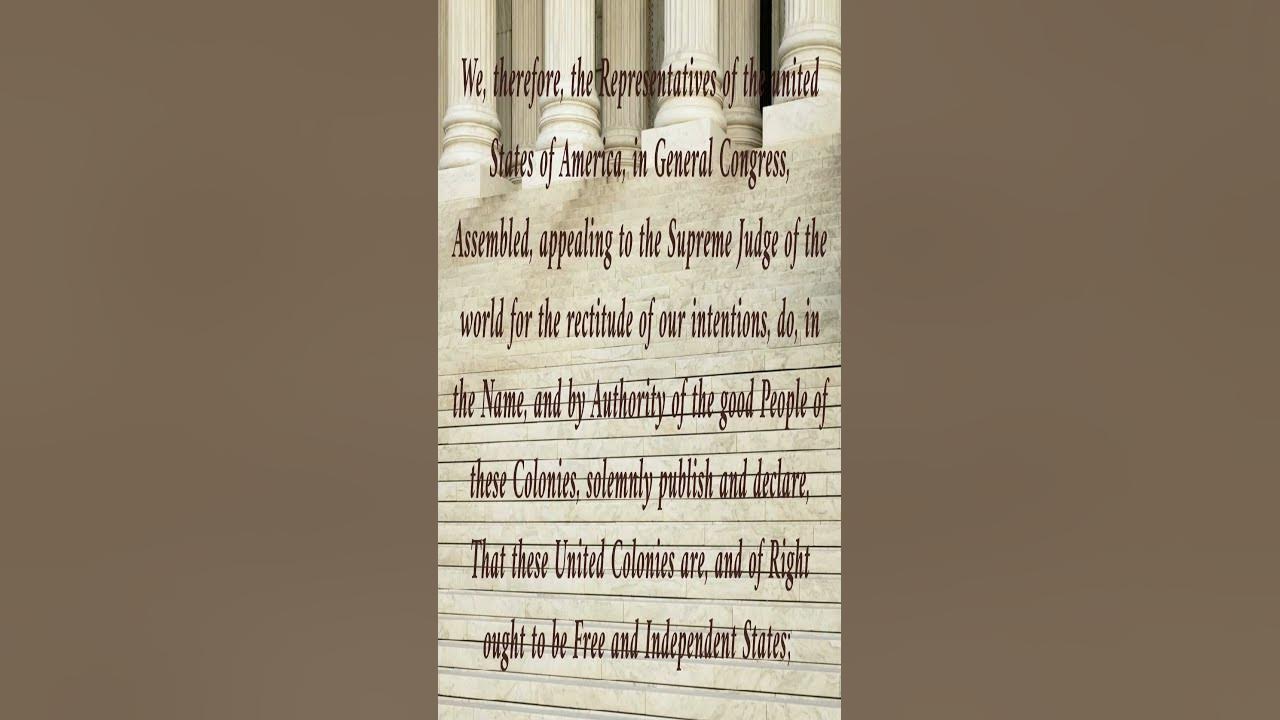 We, therefore, the Representatives of the united
States of America, in General Congress,
Assembled, appealing to the Supreme Judge of the
world for the rectitude of our intentions, do, in
the Name, and by Authority of the good People of
these Colonies, solemnly publish and declare,
That these United Colonies are, and of Right
ought to be Free and Independent States;